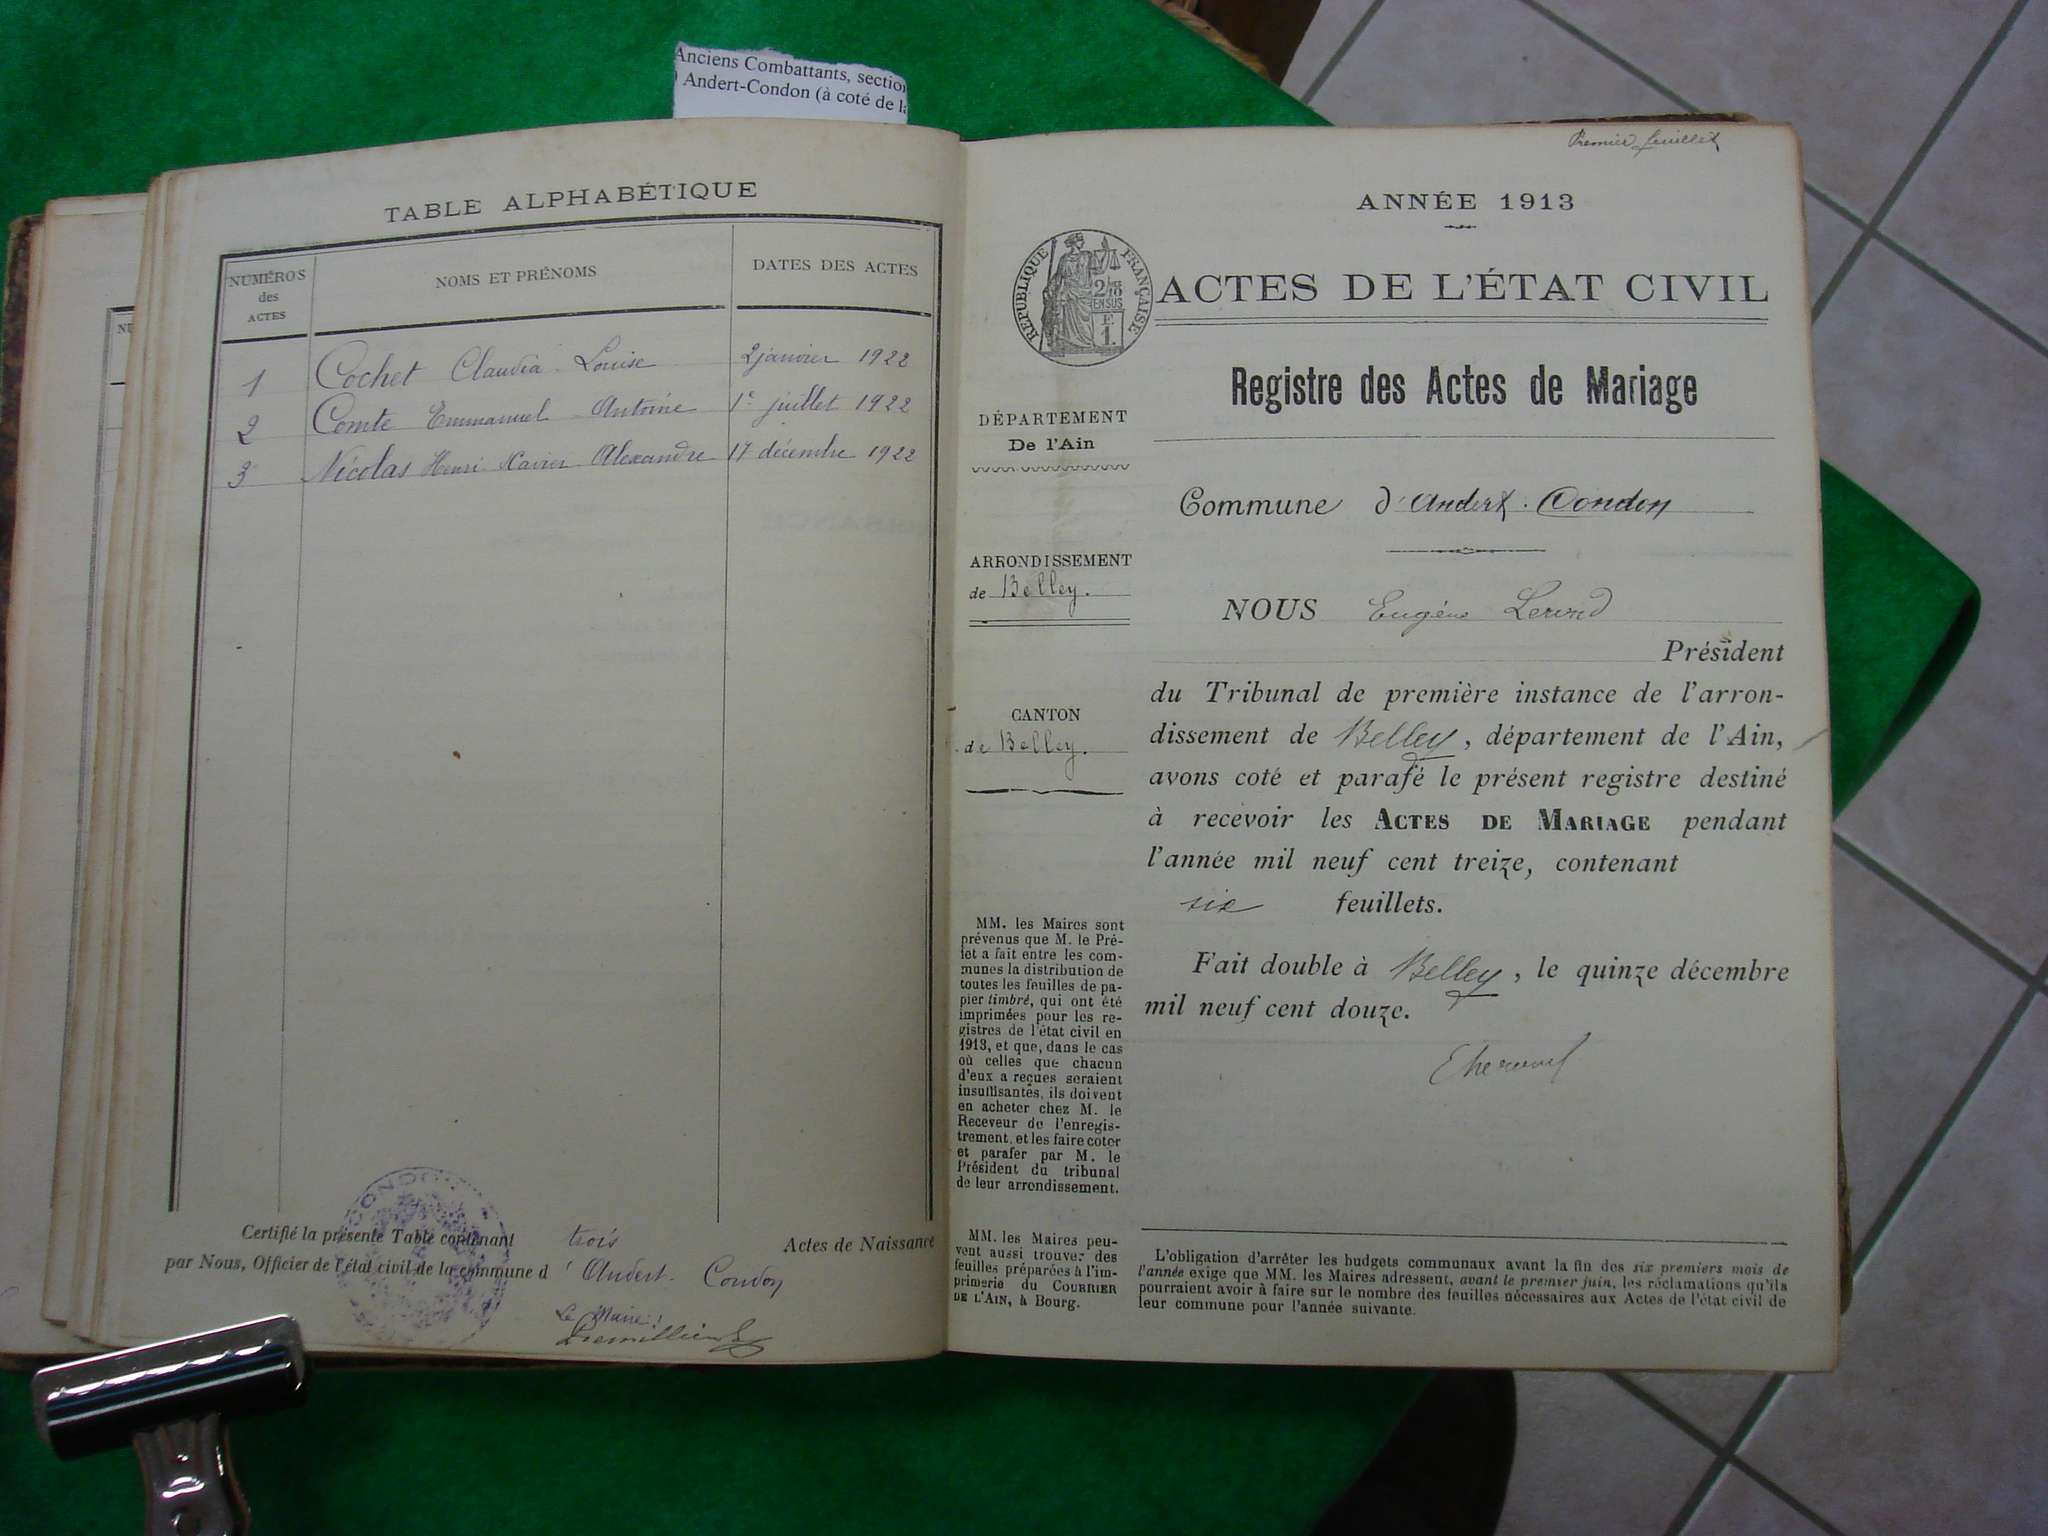 Anciens Combattants, section
Andert-Condon (à coté de la
TABLE ALPHABÉTIQUE
NUMÉROS
des
ACTES
NOMS ET PRÉNOMS
DATES DES ACTES
1 Cochet Claudia Louise 2 janvier 1922
2 Comte Emmanuel Antoine 1e juillet 1922
3 Nicolas Henri Xavier Alexandre 17 décembre 1922
CONDON
Certifié la présente Table contenant trois Actes de Naissance
par Nous, Officier de l'état civil de la commune d'Andert-Condon
Le Maire:
Premier feuillet
ANNÉE 1913
RÉPUBLIQUE FRANÇAISE
ACTES DE L'ÉTAT CIVIL
Registre des Actes de Mariage
DÉPARTEMENT
De l'Ain
Commune d'Andert-Condon
ARRONDISSEMENT
de Belley.
CANTON
de Belley.
MM. les Maires sont
prévenus que M. le Pré-
fet a fait entre les com-
munes la distribution de
toutes les feuilles de pa-
pier timbré, qui ont été
imprimées pour les re-
gistres de l'état civil en
1913, et que, dans le cas
où celles que chacun
d'eux a reçues seraient
insuffisantes, ils doivent
en acheter chez M. le
Receveur de l'enregis-
trement, et les faire coter
et parafer par M. le
Président du tribunal
de leur arrondissement.
MM. les Maires peu-
vent aussi trouver des
feuilles préparées à l'im-
primerie du COURRIER
DE L'AIN, à Bourg.
NOUS Eugène
Président
du Tribunal de première instance de l'arron-
dissement de Belley, département de l'Ain,
avons coté et parafé le présent registre destiné
à recevoir les ACTES DE MARIAGE pendant
l'année mil neuf cent treize, contenant
six feuillets.
Fait double à Belley, le quinze décembre
mil neuf cent douze.
L'obligation d'arrêter les budgets communaux avant la fin des six premiers mois de
l'année exige que MM. les Maires adressent, avant le premier juin, les réclamations qu'ils
pourraient avoir à faire sur le nombre des feuilles nécessaires aux Actes de l'état civil de
leur commune pour l'année suivante.